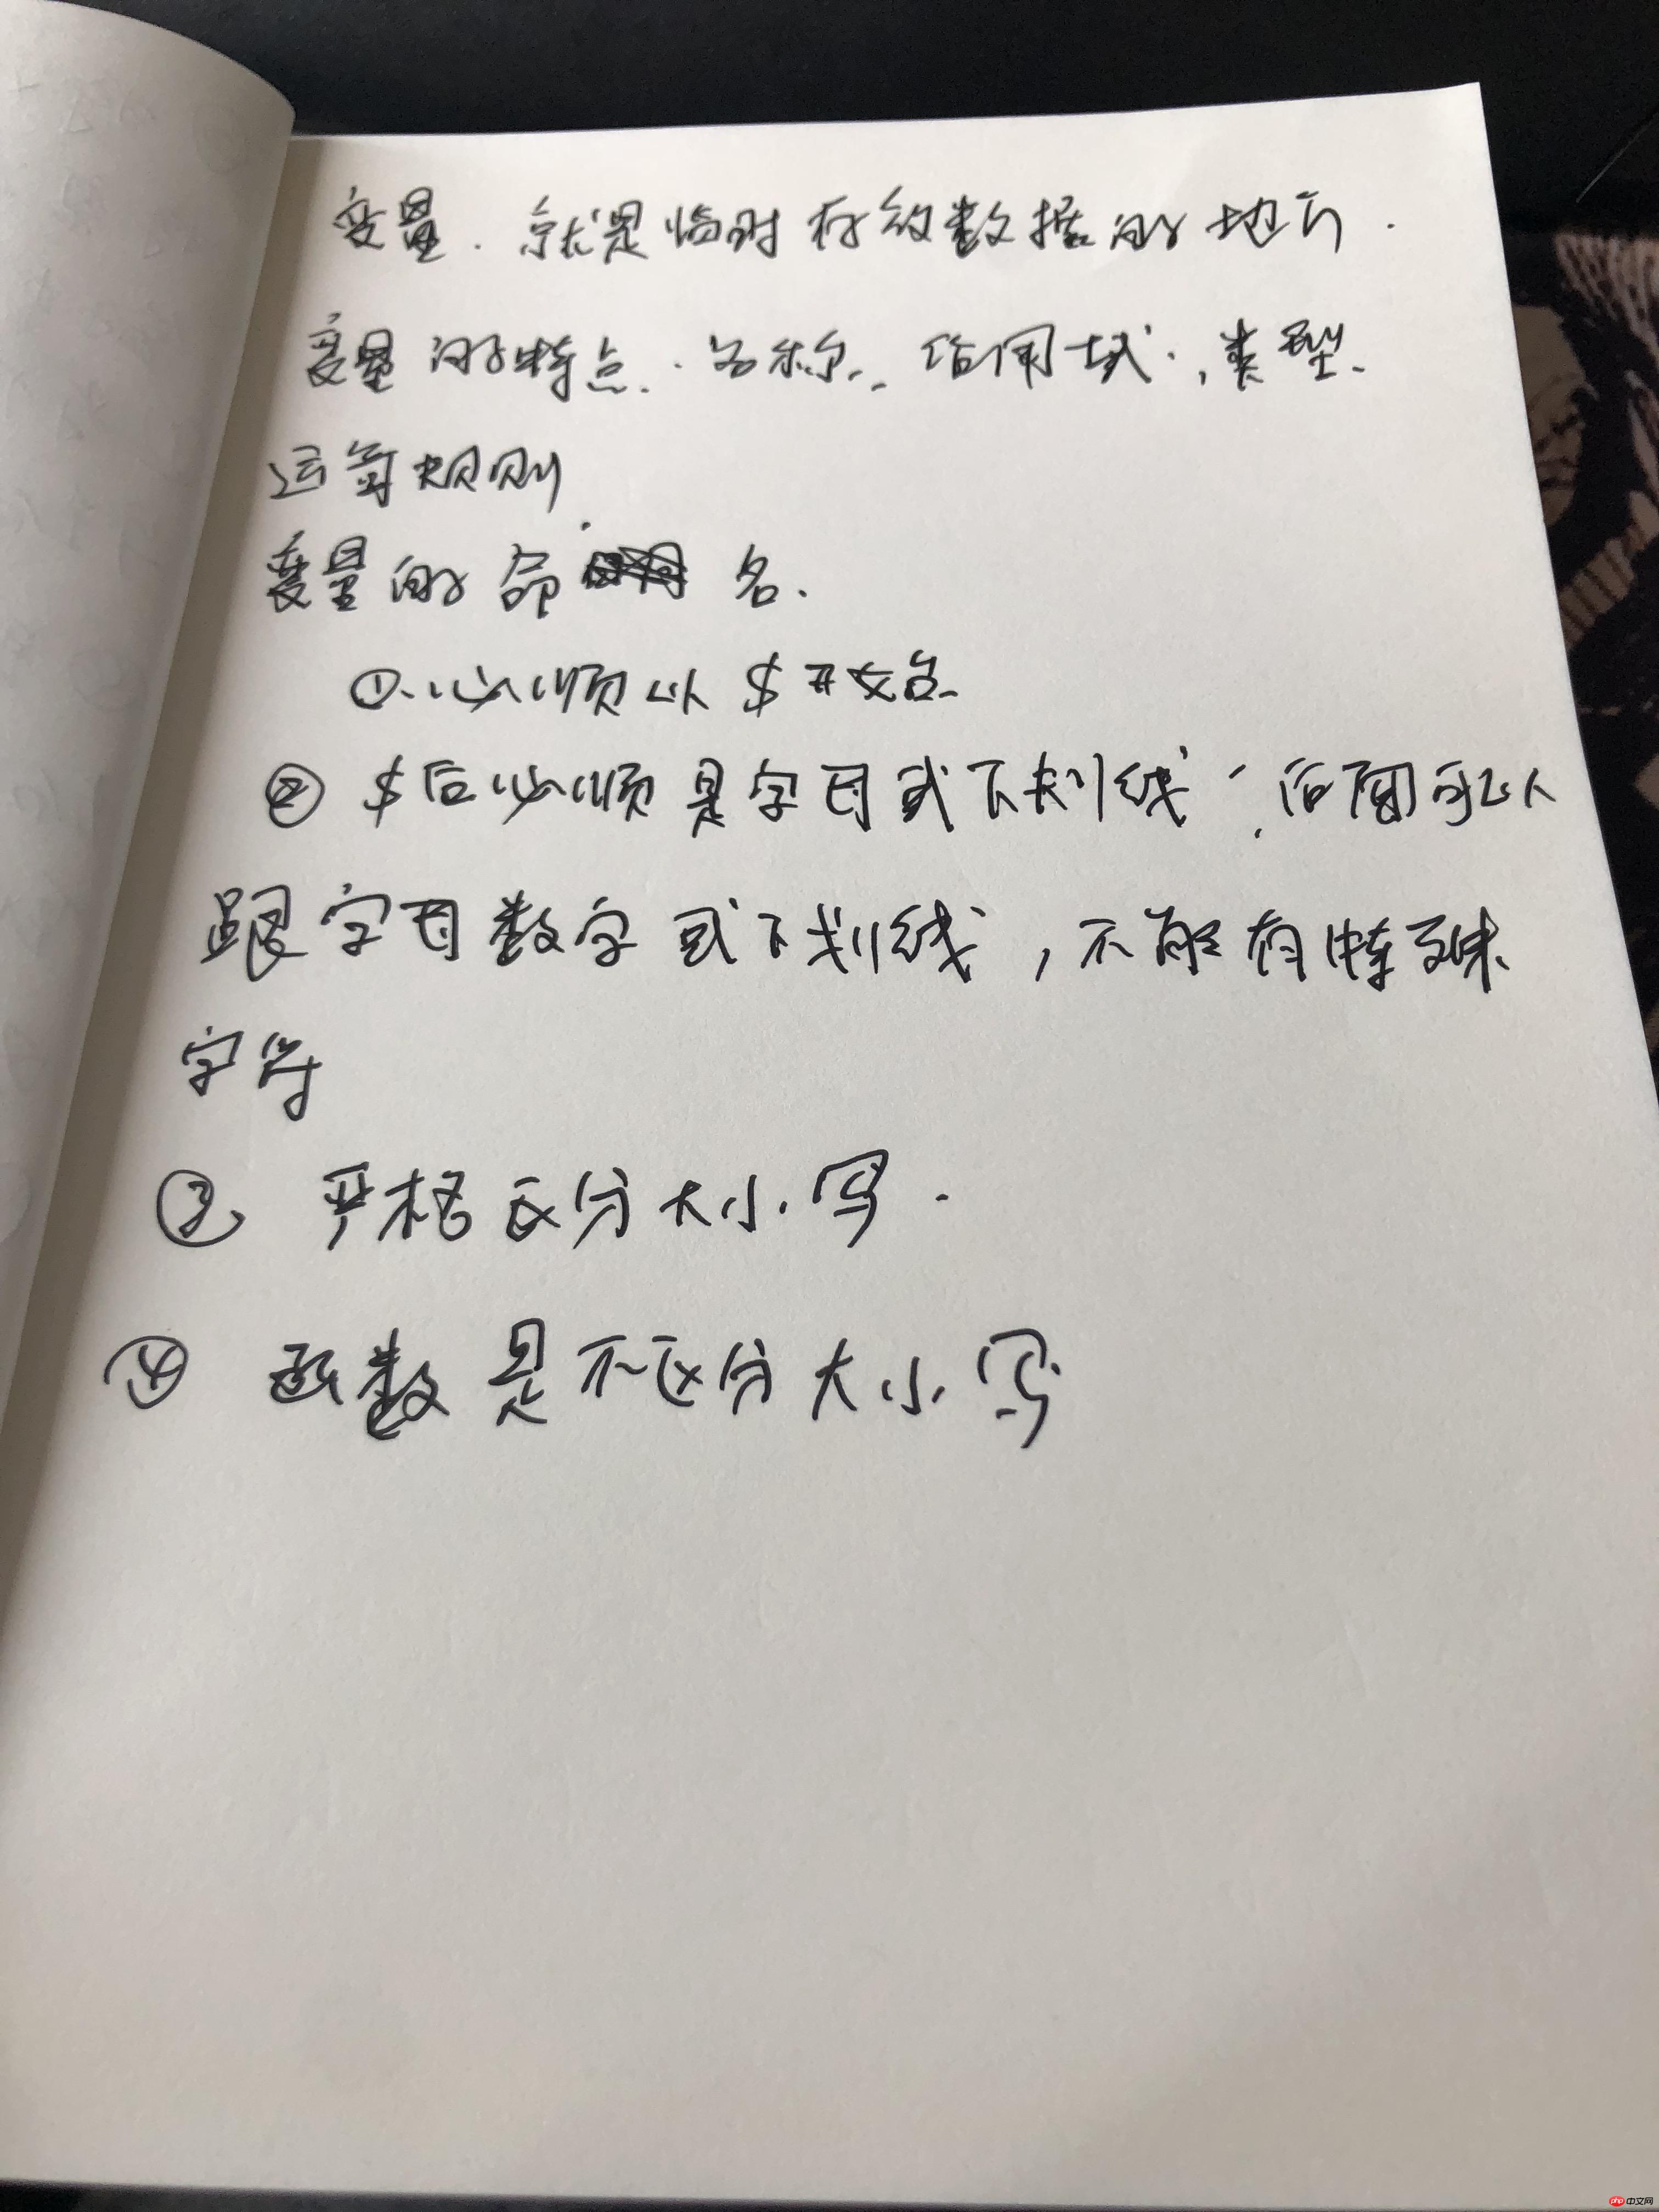 变量. 就是临时存放数据的地方.
变量的特点. 名称. 作用域, 类型.
运算规则.
变量的命名.
①. 必须以 $ 开始
② $后必须是字母或下划线, 后面可以
跟字母数字或下划线, 不能有特殊
字符
③ 严格区分大小写.
④ 函数是不区分大小写
php 中文网